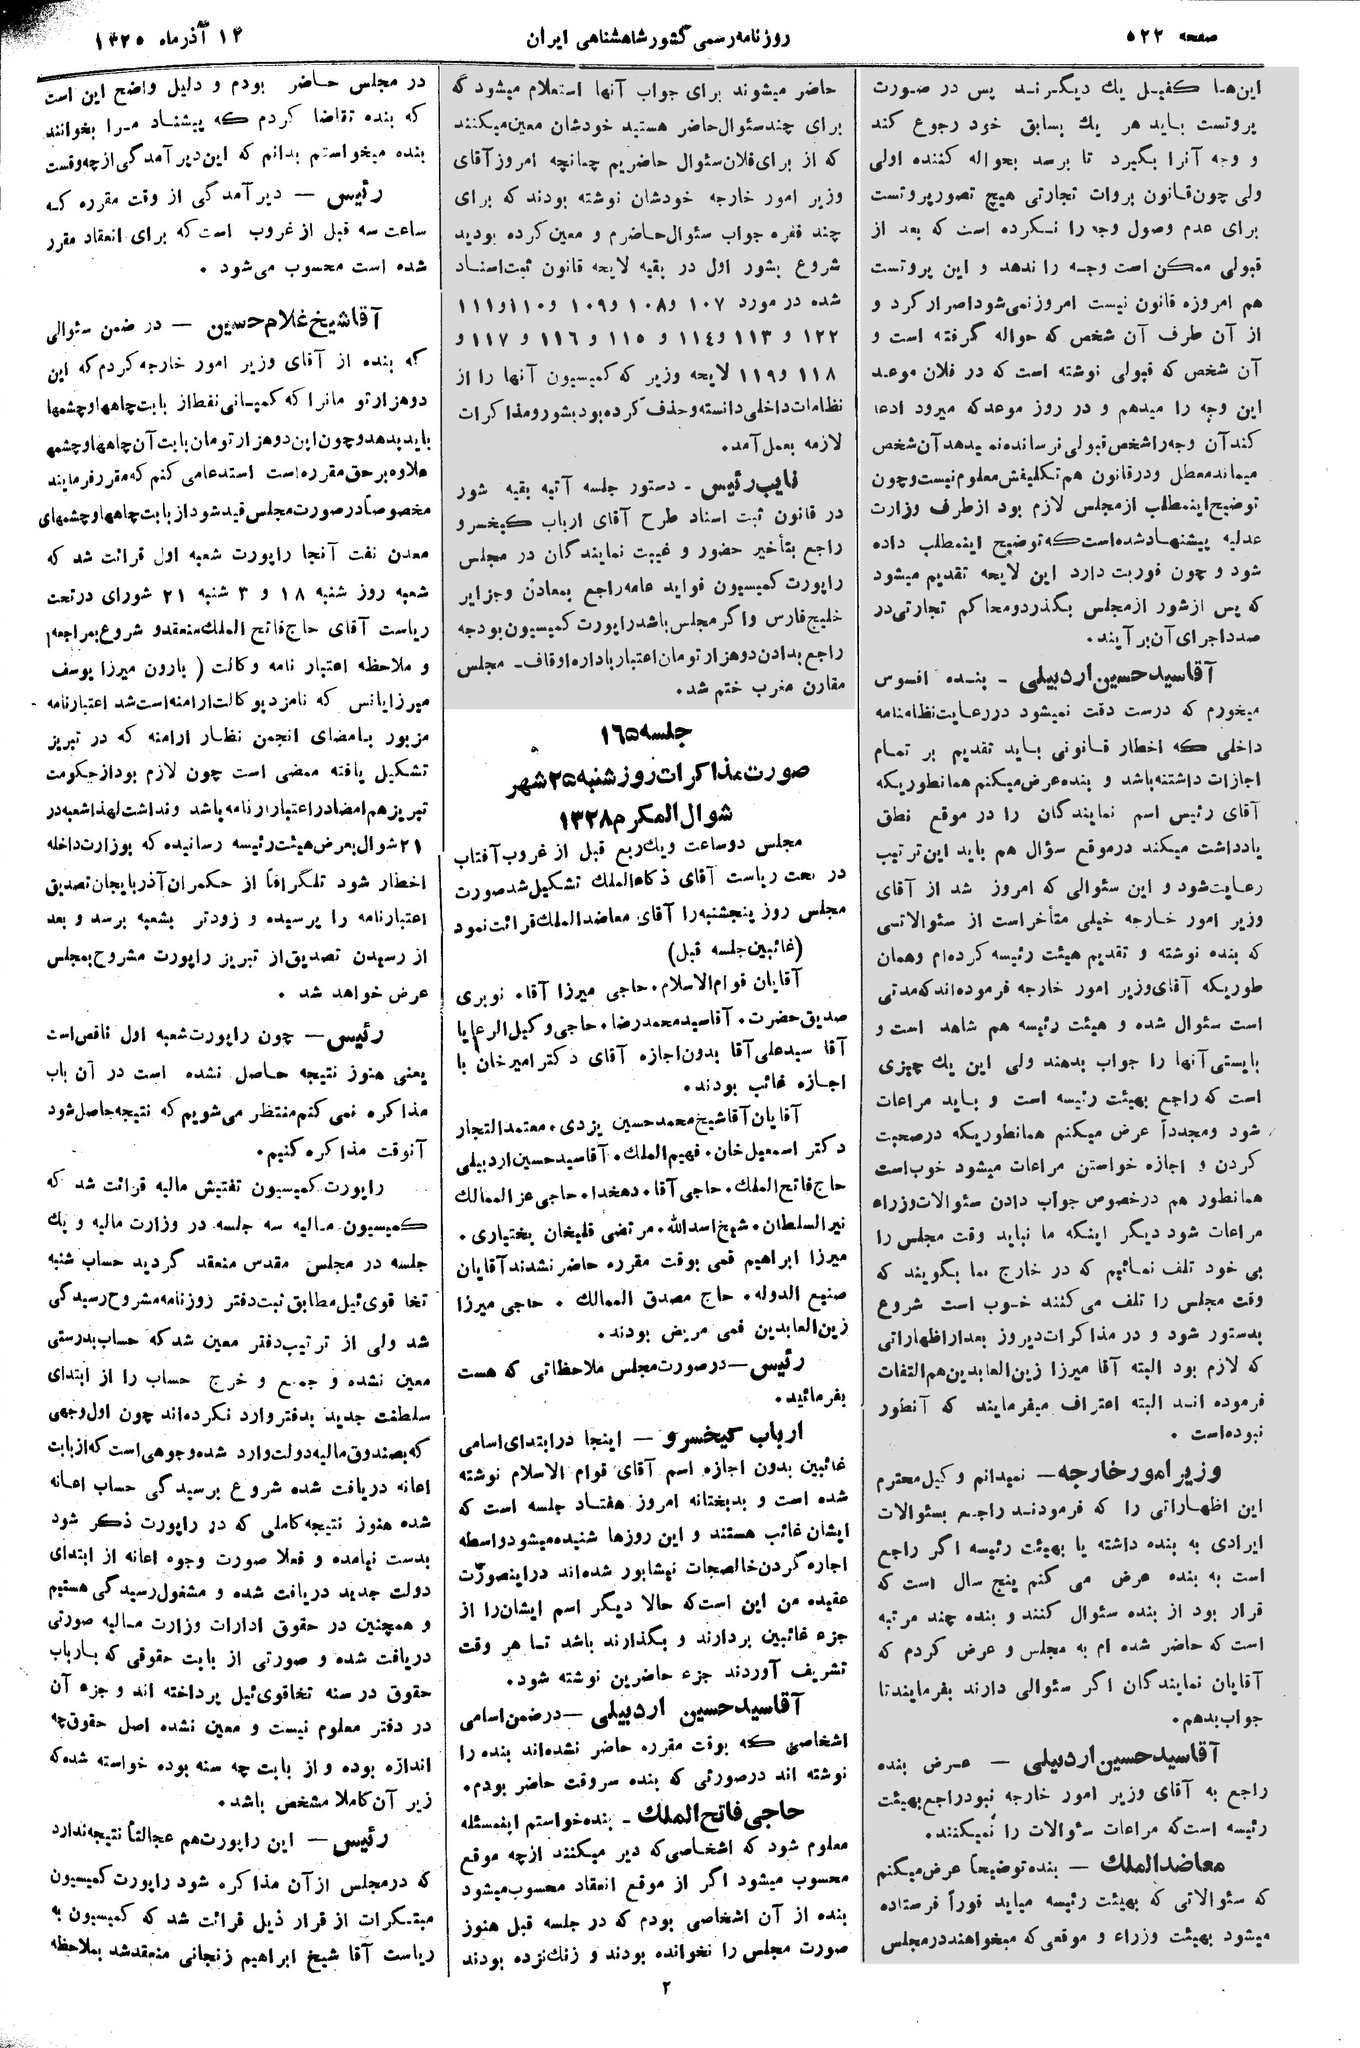 صفحه ۵۲۲
روزنامه رسمی کشور شاهنشاهی ایران
۱۴ آذر ماه ۱۳۲۵
این‌ها کفیل یك دیگرند پس در صورت
پروتست باید هر یك بسابق خود رجوع کند
و وجه آنرا بگیرد تا برسد بحواله کننده اولی
ولی چون قانون بروات تجارتی هیچ تصور پروتست
برای عدم وصول وجه را نکرده است که بعد از
قبولی ممکن است وجه را ندهد و این پروتست
هم امروزه قانون نیست امروز نمی‌شود اصرار کرد و
از آن طرف آن شخص که حواله گرفته است و
آن شخص که قبولی نوشته است که در فلان موعد
این وجه را میدهم و در روز موعد که میرود ادعا
کند آن وجه را شخص قبولی نرسانده نمیدهد آن شخص
میماند معطل و در قانون هم تکلیفش معلوم نیست و چون
توضیح اینمطلب از مجلس لازم بود از طرف وزارت
عدلیه پیشنهاد شده است که توضیح اینمطلب داده
شود و چون فوریت دارد این لایحه تقدیم میشود
که پس از شور از مجلس بگذرد و محاکم تجارتی در
صدد اجرای آن بر آیند.
آقا سید حسین اردبیلی ـ بنده افسوس
میخورم که درست دقت نمیشود در رعایت نظامنامه
داخلی که اخطار قانونی باید تقدیم بر تمام
اجازات داشته باشد و بنده عرض میکنم همانطوریکه
آقای رئیس اسم نمایندگان را در موقع نطق
یادداشت میکند در موقع سؤال هم باید این ترتیب
رعایت شود و این سئوالی که امروز شد از آقای
وزیر امور خارجه خیلی متأخر است از سئوالاتی
که بنده نوشته و تقدیم هیئت رئیسه کرده‌ام و همان
طوریکه آقای وزیر امور خارجه فرموده‌اند که مدتی
است سئوال شده و هیئت رئیسه هم شاهد است و
بایستی آنها را جواب بدهند ولی این یك چیزی
است که راجع بهیئت رئیسه است و باید مراعات
شود و مجدداً عرض میکنم همانطوریکه در صحبت
کردن و اجازه خواستن مراعات میشود خوب است
همانطور هم در خصوص جواب دادن سئوالات وزراء
مراعات شود دیگر اینکه ما نباید وقت مجلس را
بی خود تلف نمائیم که در خارج بما بگویند که
وقت مجلس را تلف می‌کنند خوب است شروع
بدستور شود و در مذاکرات دیروز بعد از اظهاراتی
که لازم بود البته آقا میرزا زین‌العابدین هم التفات
فرموده اند البته اعتراف میفرمایند که آنطور
نبوده است .
وزیر امور خارجه ـ نمیدانم وکیل محترم
این اظهاراتی را که فرمودند راجع بسئوالات
ایرادی به بنده داشته یا بهیئت رئیسه اگر راجع
است به بنده عرض می کنم پنج سال است که
قرار بود از بنده سئوال کنند و بنده چند مرتبه
است که حاضر شده ام به مجلس و عرض کردم که
آقایان نمایندگان اگر سئوالی دارند بفرمایند تا
جواب بدهم.
آقا سید حسین اردبیلی ـ عرض بنده
راجع به آقای وزیر امور خارجه نبود راجع بهیئت
رئیسه است که مراعات سئوالات را نمیکنند.
معاضد الملك ـ بنده توضیحاً عرض میکنم
که سئوالاتی که بهیئت رئیسه میاید فوراً فرستاده
میشود بهیئت وزراء و موقعی که میخواهند در مجلس
حاضر میشوند برای جواب آنها استعلام میشود که
برای چند سئوال حاضر هستید خودشان معین میکنند
که از برای فلان سئوال حاضریم چنانچه امروز آقای
وزیر امور خارجه خودشان نوشته بودند که برای
چند فقره جواب سئوال حاضرم و معین کرده بودید
شروع بشور اول در بقیه لایحه قانون ثبت اسناد
شده در مورد ۱۰۷ و ۱۰۸ و ۱۰۹ و ۱۱۰ و ۱۱۱
۱۲۲ و ۱۱۳ و ۱۱٤ و ۱۱۵ و ۱۱٦ و ۱۱۷ و
۱۱۸ و ۱۱۹ لایحه وزیر که کمیسیون آنها را از
نظامات داخلی دانسته و حذف کرده بود بشور و مذاکرات
لازمه بعمل آمد.
نایب رئیس ـ دستور جلسه آتیه بقیه شور
در قانون ثبت اسناد طرح آقای ارباب کیخسرو
راجع بتأخیر حضور و غیبت نمایندگان در مجلس
راپورت کمیسیون فواید عامه راجع بمعادن و جزایر
خلیج فارس و اگر مجلس باشد راپورت کمیسیون بودجه
راجع بدادن دو هزار تومان اعتبار باداره اوقاف ـ مجلس
مقارن مغرب ختم شد.
جلسه ۱٦۵
صورت مذاکرات روز شنبه ۲۵ شهر
شوال المکرم ۱۳۲۸
مجلس دو ساعت و یك ربع قبل از غروب آفتاب
در تحت ریاست آقای ذکاءالملك تشکیل شد صورت
مجلس روز پنجشنبه را آقای معاضدالملك قرائت نمود
(غائبین جلسه قبل)
آقایان قوام الاسلام ۰ حاجی میرزا آقا ۰ نوبری
صدیق حضرت ۰ آقا سید محمد رضا ۰ حاجی وکیل الرعایا
آقا سید علی آقا بدون اجازه آقای دکتر امیرخان با
اجازه غائب بودند.
آقایان آقا شیخ محمد حسین یزدی ۰ معتمد التجار
دکتر اسمعیل خان ۰ فهیم الملك ۰ آقا سید حسین اردبیلی
حاج فاتح الملك ۰ حاجی آقا ۰ دهخدا ۰ حاجی عز الممالك
نیر السلطان ۰ شیخ اسدالله ۰ مرتضی قلیخان بختیاری ۰
میرزا ابراهیم قمی بوقت مقرره حاضر نشدند آقایان
صنیع الدوله ۰ حاج مصدق الممالك ۰ حاجی میرزا
زین‌العابدین قمی مریض بودند.
رئیس ـ در صورت مجلس ملاحظاتی که هست
بفرمائید.
ارباب کیخسرو ـ اینجا در ابتدای اسامی
غائبین بدون اجازه اسم آقای قوام الاسلام نوشته
شده است و بدبختانه امروز هفتاد جلسه است که
ایشان غائب هستند و این روزها شنیده میشود واسطه
اجاره کردن خالصجات نیشابور شده‌اند در اینصورت
عقیده من این است که حالا دیگر اسم ایشان را از
جزء غائبین بردارند و بگذارند باشد تا هر وقت
تشریف آوردند جزء حاضرین نوشته شود.
آقا سید حسین اردبیلی ـ در ضمن اسامی
اشخاصی که بوقت مقرره حاضر نشده‌اند بنده را
نوشته اند درصورتی که بنده سر وقت حاضر بودم.
حاجی فاتح الملك ـ بنده خواستم اینمسئله
معلوم شود که اشخاصی که دیر میکنند از چه موقع
محسوب میشود اگر از موقع انعقاد محسوب میشود
بنده از آن اشخاصی بودم که در جلسه قبل هنوز
صورت مجلس را نخوانده بودند و زنك نزده بودند
در مجلس حاضر بودم و دلیل واضح این است
که بنده تقاضا کردم که پیشنهاد مرا بخوانند
بنده میخواستم بدانم که این دیر آمدگی از چه وقست
رئیس ـ دیر آمدگی از وقت مقرره که
ساعت سه قبل از غروب است که برای انعقاد مقرر
شده است محسوب می‌شود .
آقا شیخ غلامحسین ـ در ضمن سئوالی
که بنده از آقای وزیر امور خارجه کردم که این
دو هزار تومانرا که کمپانی نفط از بابت چاهها و چشمها
باید بدهد و چون این دو هزار تومان بابت آن چاهها و چشمها
علاوه بر حق مقرره است استدعا می کنم که مقرر فرمایند
مخصوصاً در صورت مجلس قید شود از بابت چاهها و چشمهای
معدن نفت آنجا راپورت شعبه اول قرائت شد که
شعبه روز شنبه ۱۸ و ۳ شنبه ۲۱ شورای در تحت
ریاست آقای حاج فاتح الملك منعقد و شروع بمراجعه
و ملاحظه اعتبار نامه وکالت ( بارون میرزا یوسف
میرزایانس که نامزد بوکالت ارامنه است شد اعتبارنامه
مزبور بامضای انجمن نظار ارامنه که در تبریز
تشکیل یافته ممضی است چون لازم بود از حکومت
تبریز هم امضا در اعتبار نامه باشد و نداشت لهذا شعبه در
۲۱ شوال بعرض هیئت رئیسه رسانیده که بوزارت داخله
اخطار شود تلگرافاً از حکمران آذربایجان تصدیق
اعتبارنامه را پرسیده و زودتر بشعبه برسد و بعد
از رسیدن تصدیق از تبریز راپورت مشروح بمجلس
عرض خواهد شد .
رئیس ـ چون راپورت شعبه اول ناقص است
یعنی هنوز نتیجه حاصل نشده است در آن باب
مذاکره نمی کنم منتظر می‌شویم که نتیجه حاصل شود
آنوقت مذاکره کنیم.
راپورت کمیسیون تفتیش مالیه قرائت شد که
کمیسیون مالیه سه جلسه در وزارت مالیه و یك
جلسه در مجلس مقدس منعقد گردید حساب شنبه
تخاقوی ئیل مطابق ثبت دفتر روزنامه مشروح رسیدگی
شد ولی از ترتیب دفتر معین شد که حساب بدرستی
معین نشده و جمع و خرج حساب را از ابتدای
سلطنت جدید بدفتر وارد نکرده‌اند چون اول وجهی
که بصندوق مالیه دولت وارد شده وجوهی است که از بابت
اعانه دریافت شده شروع برسیدگی حساب اعانه
شده هنوز نتیجه کاملی که در راپورت ذکر شود
بدست نیامده و فعلا صورت وجوه اعانه از ابتدای
دولت جدید دریافت شده و مشغول رسیدگی هستیم
و همچنین در حقوق ادارات وزارت مالیه صورتی
دریافت شده و صورتی از بابت حقوقی که بارباب
حقوق در سنه تخاقوی ئیل پرداخته اند و جزء آن
در دفتر معلوم نیست و معین نشده اصل حقوق چه
اندازه بوده و از بابت چه سنه بوده خواسته شده که
زیر آن کاملا مشخص باشد.
رئیس ـ این راپورت هم عجالتاً نتیجه ندارد
که در مجلس از آن مذاکره شود راپورت کمیسیون
مبتکرات از قرار ذیل قرائت شد که کمیسیون به
ریاست آقا شیخ ابراهیم زنجانی منعقد شد بملاحظه
۲